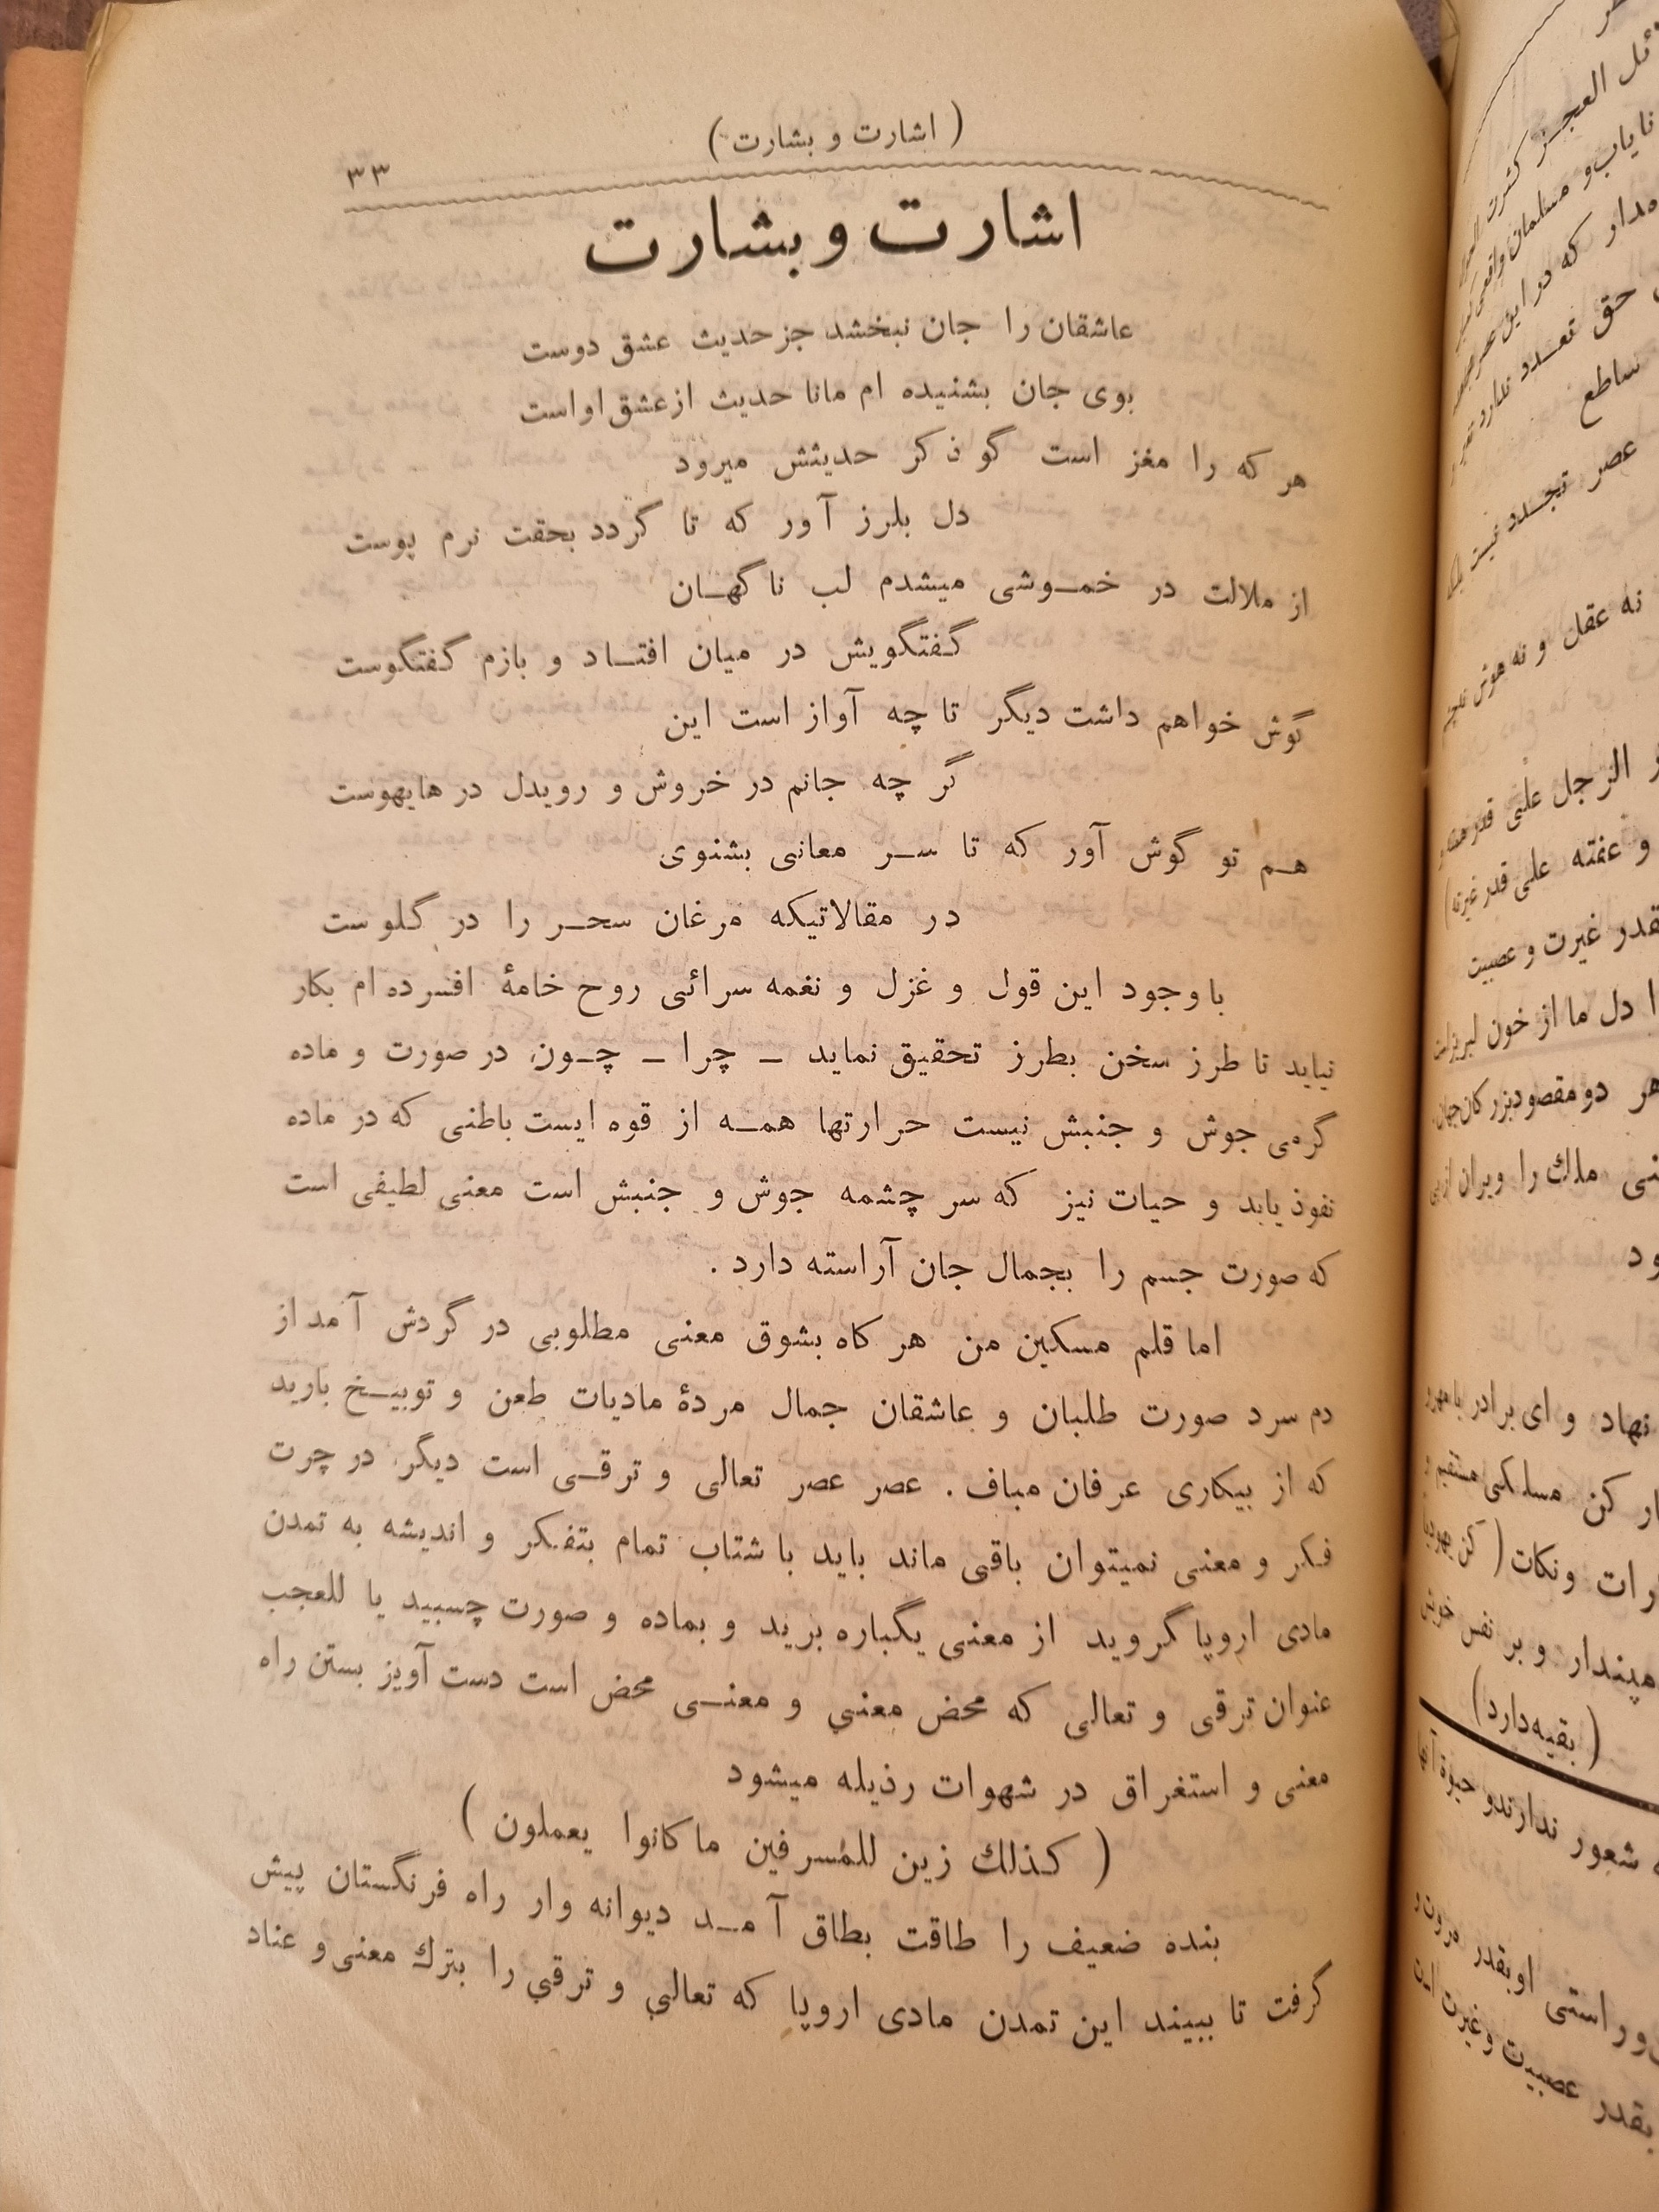 ( اشارت و بشارت )
۳۳
اشارت و بشارت
عاشقان را جان نبخشد جز حدیث عشق دوست
بوی جان بشنیده ام مانا حدیث از عشق او است
هر که را مغز است گو ذکر حدیثش میرود
دل بلرز آور که تا گردد بحقت نرم پوست
از ملالت در خموشی میشدم لب ناگهان
گفتگویش در میان افتاد و بازم گفتگوست
گوش خواهم داشت دیگر تا چه آواز است این
گر چه جانم در خروش و رویدل در هایهوست
هم تو گوش آور که تا سر معانی بشنوی
در مقالاتیکه مرغان سحر را در گلو ست
با وجود این قول و غزل و نغمه سرائی روح خامهٔ افسرده ام بکار
نیاید تا طرز سخن بطرز تحقیق نماید – چرا – چون در صورت و ماده
گرمی جوش و جنبش نیست حرارتها همه از قوه ایست باطنی که در ماده
نفوذ یابد و حیات نیز که سر چشمه جوش و جنبش است معنی لطیفی است
که صورت جسم را بجمال جان آراسته دارد .
اما قلم مسکین من هر کاه بشوق معنی مطلوبی در گردش آمد از
دم سرد صورت طلبان و عاشقان جمال مردهٔ مادیات طعن و توبیخ بارید
که از بیکاری عرفان مباف . عصر عصر تعالی و ترقی است دیگر در چرت
فکر و معنی نمیتوان باقی ماند باید با شتاب تمام بتفکر و اندیشه به تمدن
مادی اروپا گروید از معنی یگباره برید و بماده و صورت چسبید یا للعجب
عنوان ترقی و تعالی که محض معنی و معنی محض است دست آویز بستن راه
معنی و استغراق در شهوات رذیله میشود
( کذلك زین للمسرفین ما کانوا یعملون )
بنده ضعیف را طاقت بطاق آمد دیوانه وار راه فرنگستان پیش
گرفت تا ببیند این تمدن مادی اروپا که تعالی و ترقی را بترك معنی و عناد
ساطع
عصر تجدد نیست
نه عقل و نه هوش
الرجل علی قدر
و عفته علی قدر غیرته )
قدر غیرت و عصبیت
دل ما از خون لبریز است
هر دو مقصود بزرگان جهان
ملك را ویران از
نهاد و ای برادر با
کن مسلکی مستقیم
رات و نکات ( کن یهودیا
مپندار و بر نفس خویش
( بقیه دارد )
شعور ندارند و حیوة آنها
و راستی او بقدر مروت و
بقدر عصبیت و غیرت است